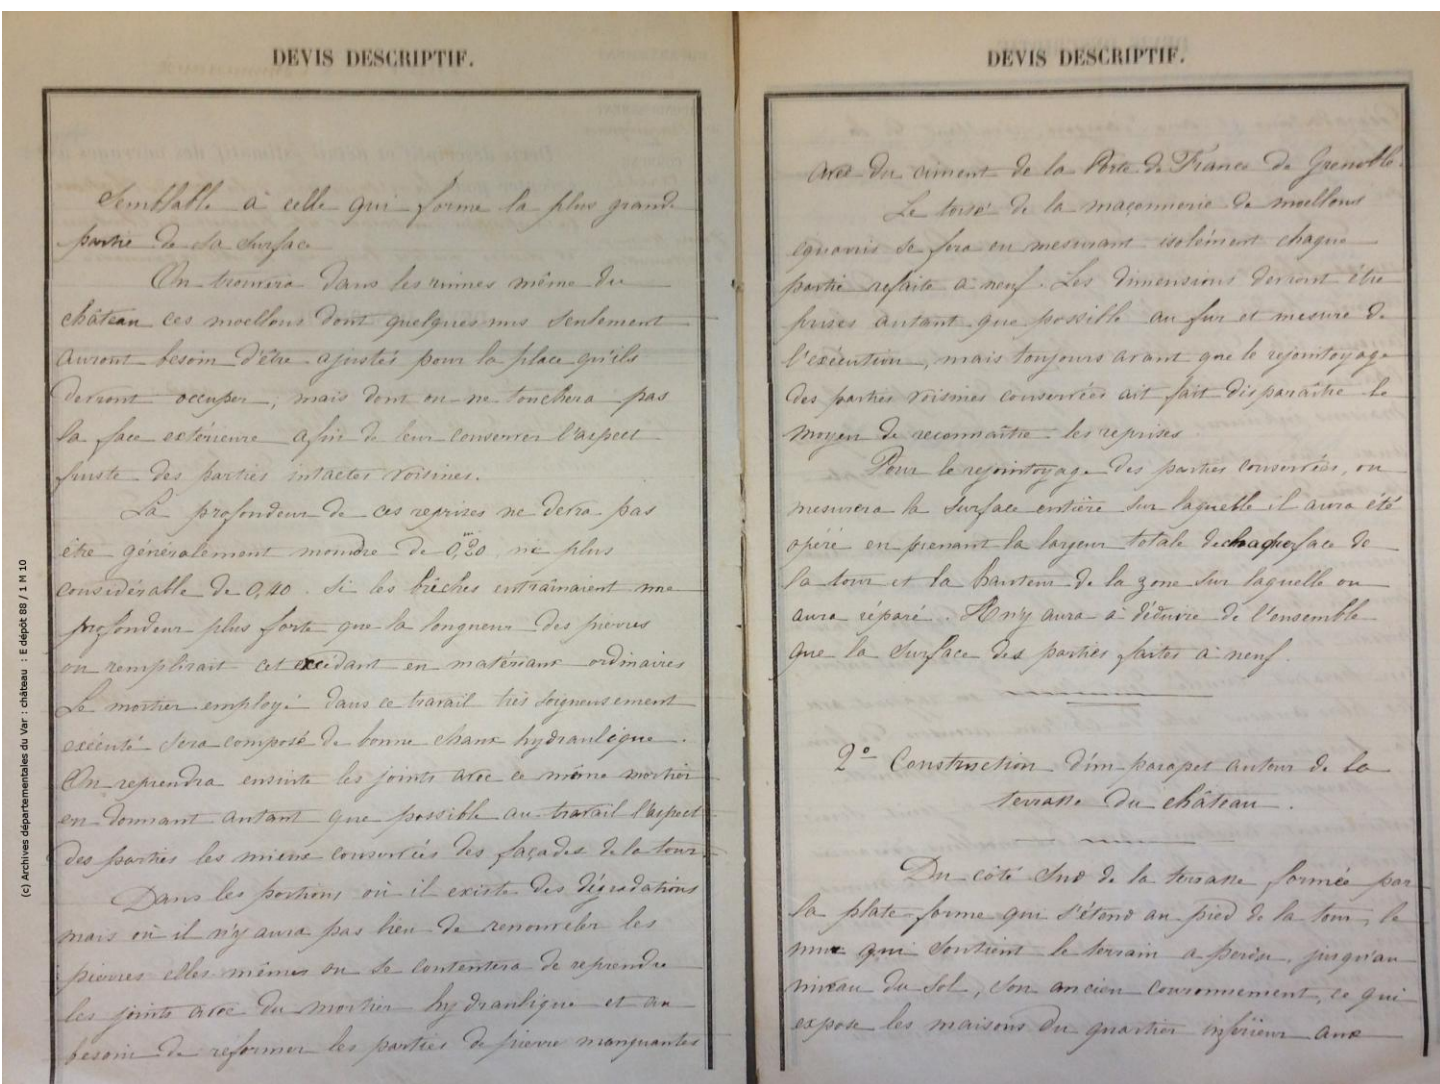 DEVIS DESCRIPTIF.
Semblable à celle qui forme la plus grande
partie de sa surface
On trouvera dans les ruines même du
château ces moellons dont quelques uns seulement
auront besoin d'être ajustés pour la place qu'ils
devront occuper, mais dont on ne touchera pas
la face extérieure afin de leur conserver l'aspect
fruste des parties intactes voisines.
La profondeur de ces reprises ne devra pas
être généralement moindre de 0,20 ni plus
considérable de 0,40. Si les brèches entraînaient une
profondeur plus forte que la longueur des pierres
on remplirait cet excédant en matériaux ordinaires
Le mortier employé dans ce travail très soigneusement
exécuté sera composé de bonne chaux hydraulique.
On reprendra ensuite les joints avec ce même mortier
en donnant autant que possible au travail l'aspect
des parties les mieux conservées des façades de la tour.
Dans les portions où il existe des dégradations
mais où il n'y aura pas lieu de renouveler les
pierres elles mêmes on se contentera de reprendre
les joints avec du mortier hydraulique et au
besoin de reformer les parties de pierre manquantes
DEVIS DESCRIPTIF.
avec du ciment de la Porte de France de Grenoble.
Le toisé de la maçonnerie de moellons
équarris se fera en mesurant isolément chaque
partie refaite à neuf. Les dimensions devront être
prises autant que possible au fur et mesure de
l'exécution, mais toujours avant que le rejointoyage
des parties voisines conservées ait fait disparaître le
moyen de reconnaître les reprises.
Pour le rejointoyage des parties conservées, on
mesurera la surface entière sur laquelle il aura été
opéré en prenant la largeur totale de chaque face de
la tour et la hauteur de la zone sur laquelle on
aura réparé. Il n'y aura à déduire de l'ensemble
que la surface des parties faites à neuf.
2° Construction d'un parapet autour de la
terrasse du château.
Du côté Sud de la terrasse formée par
la plate-forme qui s'étend au pied de la tour, le
mur qui soutient le terrain a perdu, jusqu'au
niveau du sol, son ancien couronnement, ce qui
expose les maisons du quartier inférieur aux
(c) Archives départementales du Var : château : E dépôt 88 / 1 M 10